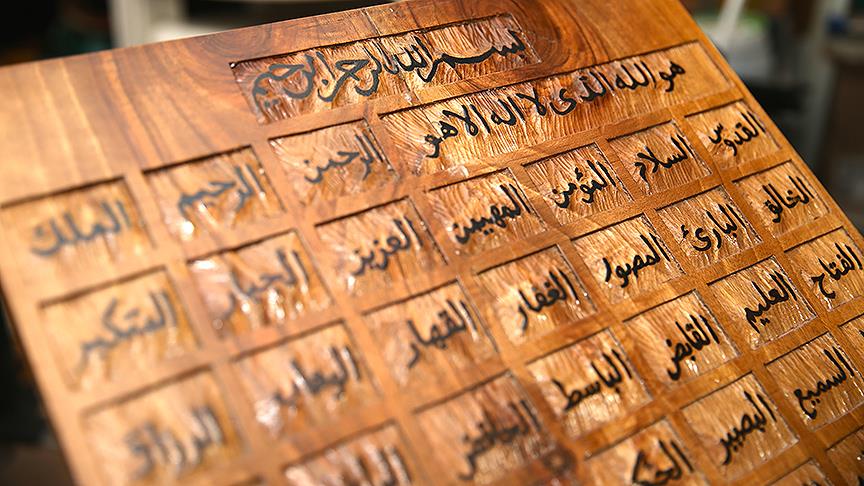 بسم الله الرحمن الرحيم
هو الله الذى لا اله الا هو الرحمن الرحيم الملك
القدوس السلام المؤمن المهيمن العزيز الجبار المتكبر
الخالق البارئ المصور الغفار القهار الوهاب الرزاق
الفتاح العليم القابض الباسط الخافض
السميع البصير